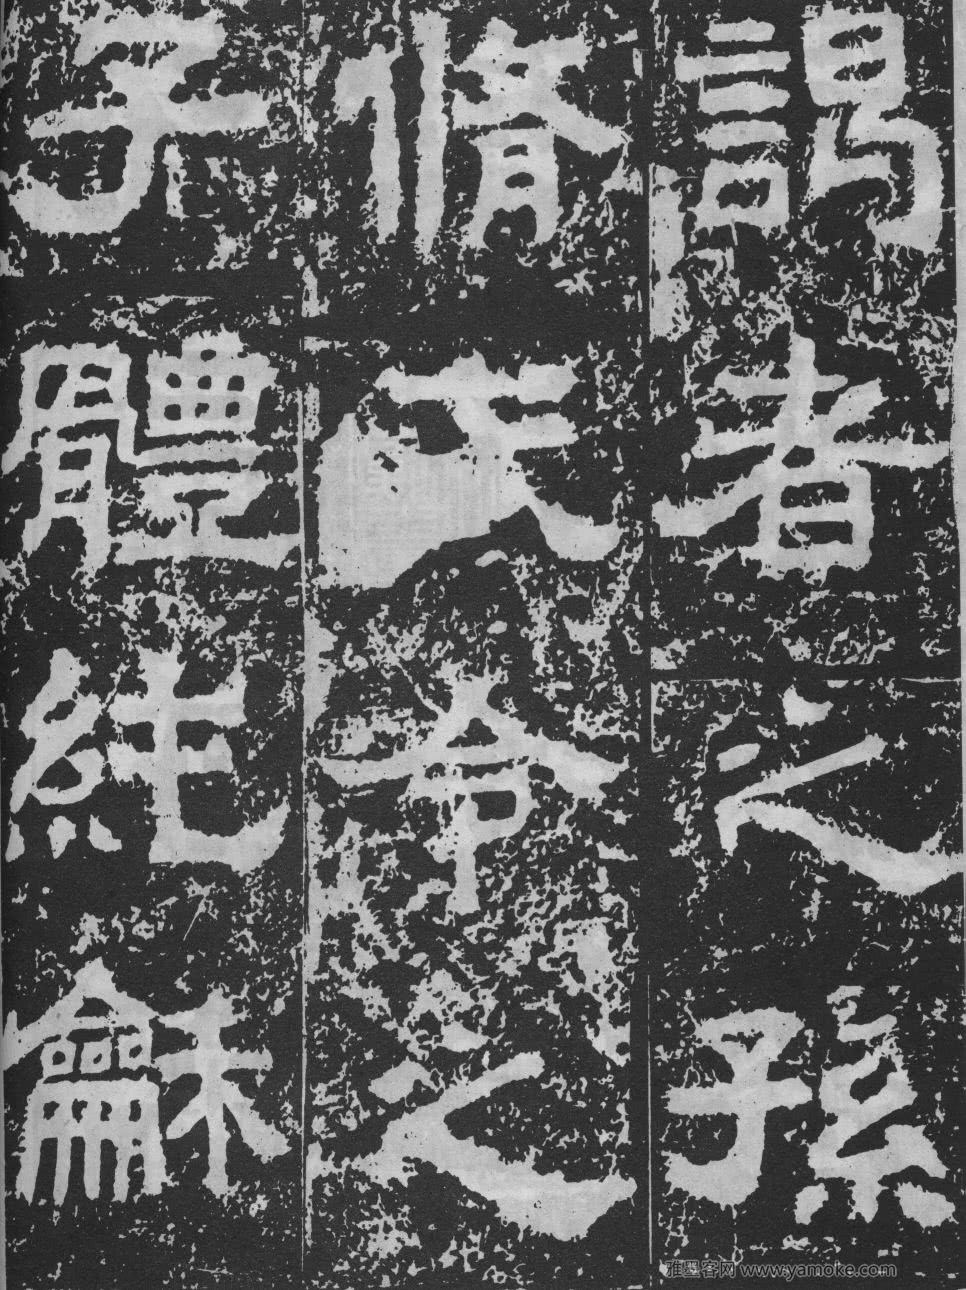 謁者之孫
脩武令之
子體純龢
雅墨客网 www.yamoke.com